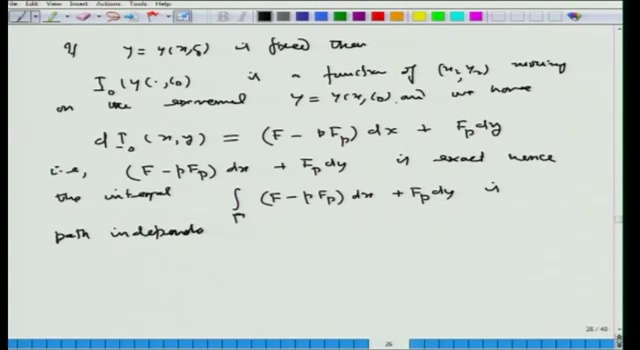 File View Insert Actions Tools Help
If y = y(x, c) is fixed then
I₀(y(·, c₀) is a function of (x₂, y₂) moving
on the extremal y = y(x, c₀) and we have
d I₀ (x, y) = (F - pF_p) dx + F_p dy
i.e, (F - pF_p) dx + F_p dy is exact hence
the integral ∫_Γ (F - pF_p) dx + F_p dy is
path independe
26 / 40
26